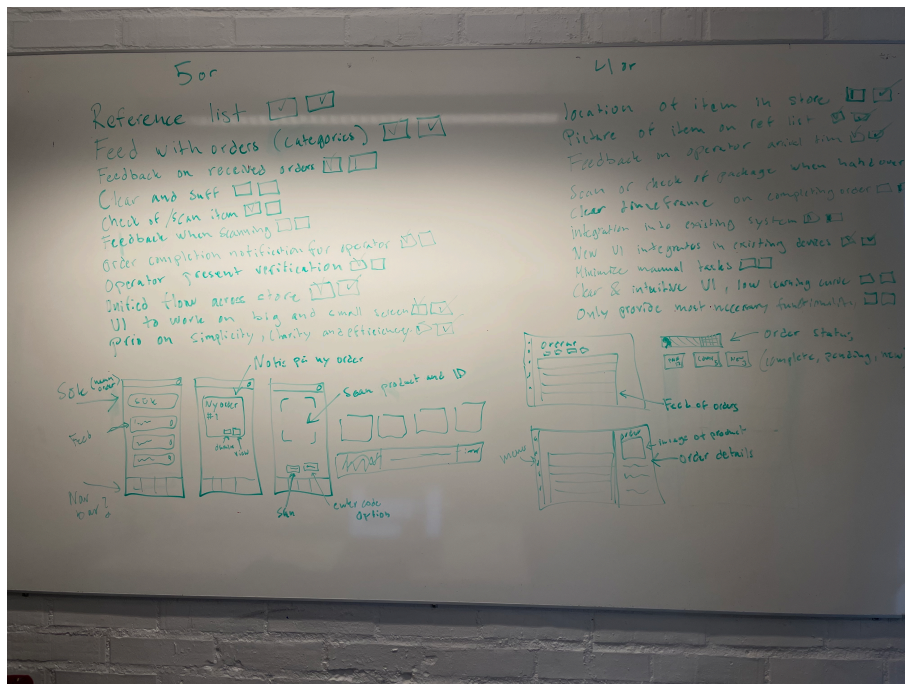 5or
Reference list
Feed with orders (categories)
Feedback on received orders
Clear and suff
Check of /scan item
Feedback when scanning
Order completion notification for operator
Operator present verification
Unified flow across store
UI to work on big and small screen
Prio on simplicity, clarity and efficiency
4or
location of item in store
Picture of item on ref list
Feedback on operator arival time
Scan or check of package when handover
Clear timeframe on completing order
Integration into existing system
New UI integrates in existing devices
Minimize manual tasks
Clear & intuitive UI, low learning curve
Only provide most necessary functionality
Notis på ny order
Sök
sök
Feed
Nav bar?
Ny order
#1
view
Scan product and ID
Scan
enter code
option
Orders
Feed of orders
Order status
(complete, pending, new
menu
order
image of product
order details